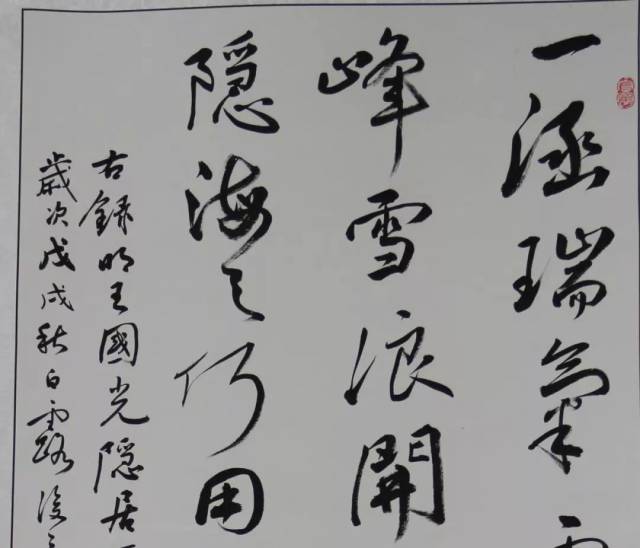 一涵瑞氣
峰雪浪開
隐海之何用
右錄明王國光隐居
歲次戊戌秋白露後